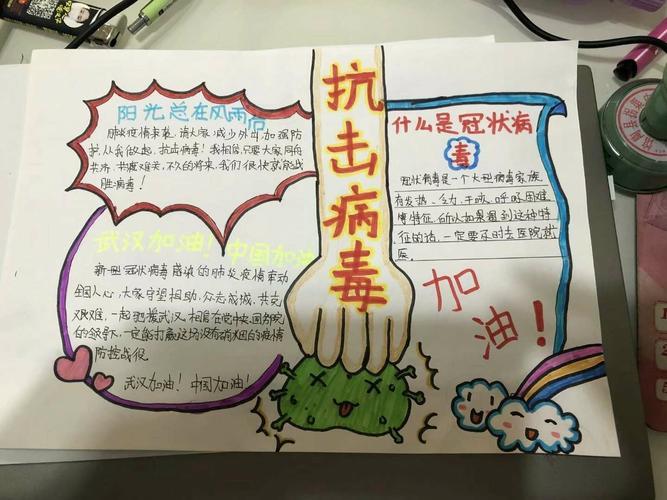 抗击病毒
阳光总在风雨后
肺炎疫情来袭,请大家减少外出,加强防
护,从我做起,抗击病毒!我相信,只要大家同舟
共济,共度难关,不久的将来,我们很快就能战
胜病毒!
武汉加油!中国加油
新型冠状病毒感染的肺炎疫情牵动
全国人心,大家守望相助,众志成城,共克
艰难,一起驰援武汉,相信在党中央国务院
的领导下,一定能打赢这场没有硝烟的疫情
防控战役。
武汉加油!中国加油!
什么是冠状病
毒
冠状病毒是一个大型病毒家族,
有发热、乏力、干咳、呼吸困难
等特征。所以如果遇到这种特
征的话,一定要及时去医院就
医。
加
油!